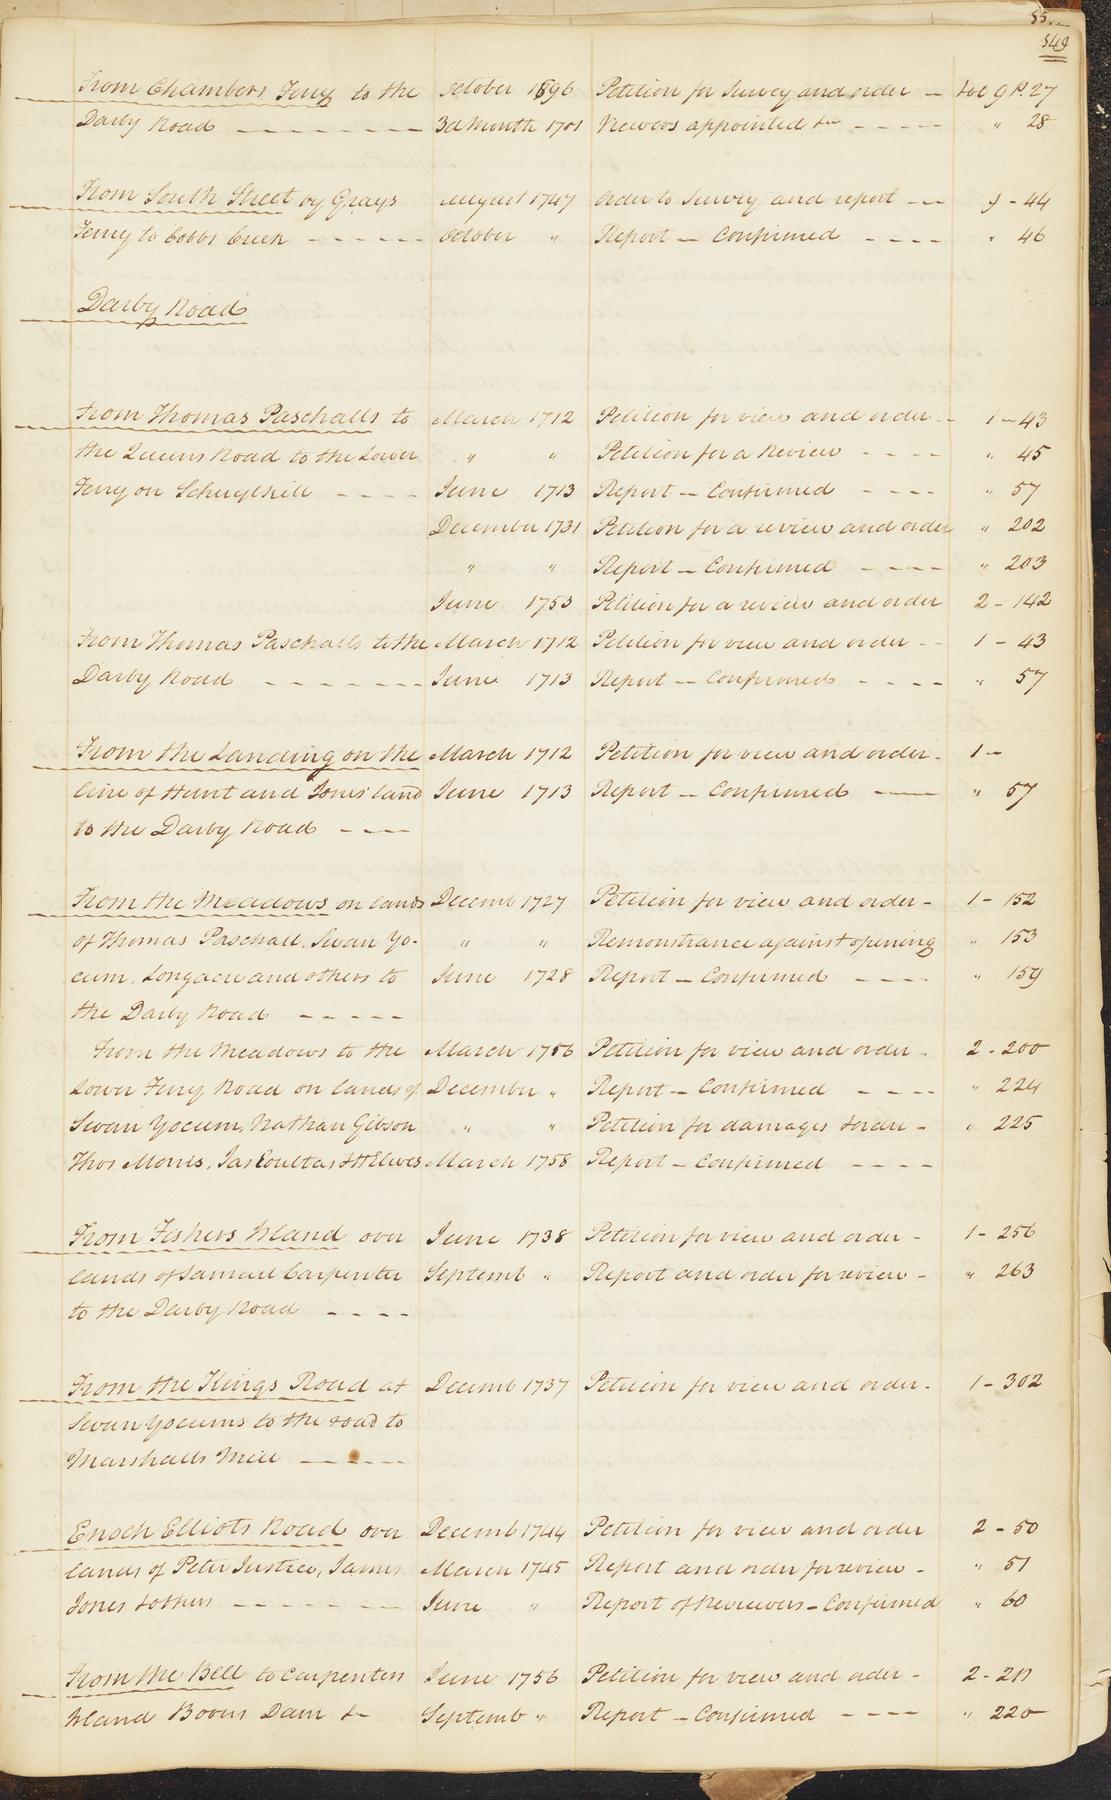 55.
549
From Chambers Ferry to the October 1696 Petition for Survey and order — Vol 9 P. 27
Darby Road - - - - - - - 3d Month 1701 Viewers appointed &c - - - - - " 28
From South Street by Grays August 1747 Order to Survey and report - - - 9 - 44
Ferry to Cobbs Creek - - - - - - October " Report — Confirmed - - - - " 46
Darby Road
From Thomas Paschalls to March 1712 Petition for view and order - - 1 - 43
the Queens Road to the Lower " " Petition for a Review - - - - " 45
Ferry on Schuylkill - - - - June 1713 Report — Confirmed - - - - " 57
December 1731 Petition for a review and order " 202
" " Report — Confirmed - - - - " 203
June 1753 Petition for a review and order 2 - 142
From Thomas Paschalls to the March 1712 Petition for view and order - - 1 - 43
Darby Road - - - - - - - June 1713 Report — Confirmed - - - - " 57
From the Landing on the March 1712 Petition for view and order - 1 -
line of Hunt and Jones' land June 1713 Report — Confirmed — " 57
to the Darby Road - - -
From the Meadows on lands Decemb 1727 Petition for view and order - 1 - 152
of Thomas Paschall, Swan Yo- " " Remonstrance against opening " 153
cum, Longacre and others to June 1728 Report — Confirmed - - - - " 159
the Darby Road - - - - -
From the Meadows to the March 1756 Petition for view and order - 2 - 200
Lower Ferry Road on lands of December " Report — Confirmed - - - - " 224
Swan Yocum, Nathan Gibson " " Petition for damages & order - " 225
Thos Morris, Jas Coultas & H Elwes March 1758 Report — Confirmed - - - -
From Fishers Island over June 1738 Petition for view and order - 1 - 256
lands of Samuel Carpenter Septemb " Report and order for review - " 263
to the Darby Road - - - -
From the Kings Road at Decemb 1737 Petition for view and order - 1 - 302
Swan Yocums to the road to
Marshalls Mill - - - - -
Enoch Elliots Road over Decemb 1744 Petition for view and order 2 - 50
lands of Peter Justice, James March 1745 Report and order for review - " 51
Jones & others - - - - - - - June " Report of Reviewers - Confirmed " 60
From the Bell to Carpenters June 1756 Petition for view and order - 2 - 211
Island Boons Dam &c Septemb " Report — Confirmed - - - - " 220